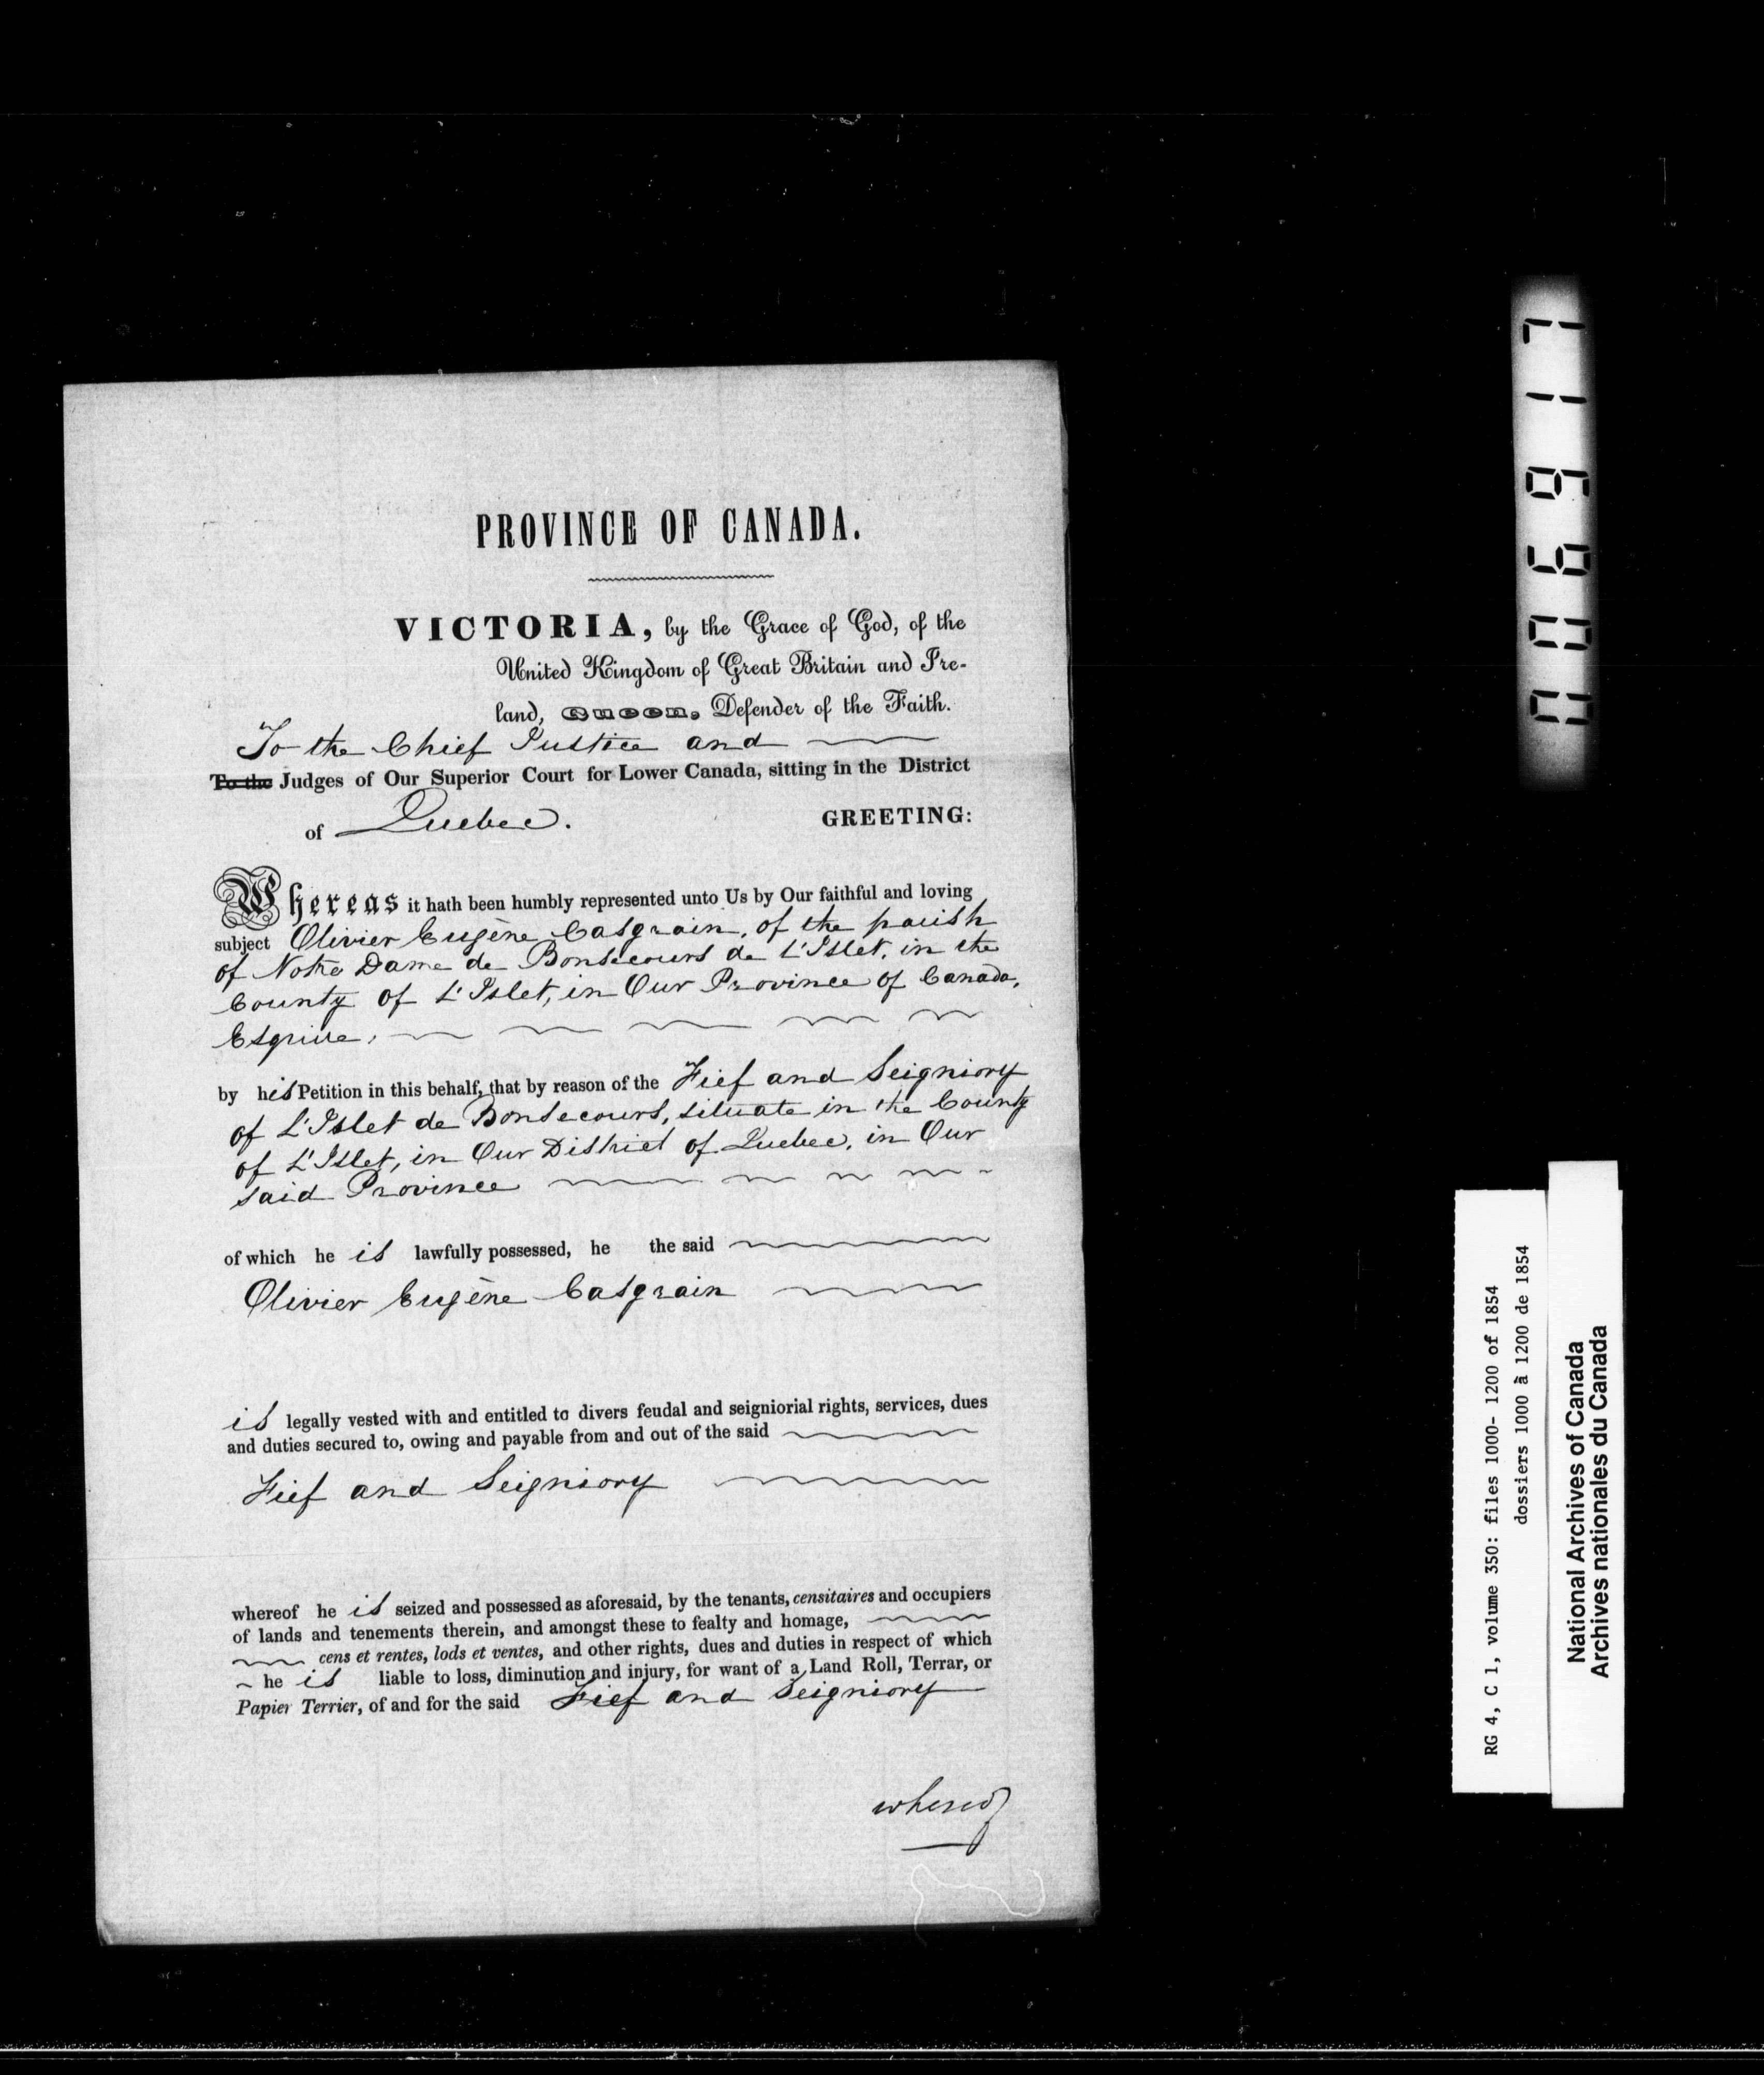 PROVINCE OF CANADA.
VICTORIA, by the Grace of God, of the
United Kingdom of Great Britain and Ire-
land, Queen, Defender of the Faith.
To the Chief Justice and
To the Judges of Our Superior Court for Lower Canada, sitting in the District
of Quebec. GREETING:
Whereas it hath been humbly represented unto Us by Our faithful and loving
subject Olivier Eugène Casgrain, of the parish
of Notre Dame de Bonsecours de L'Islet, in the
County of L'Islet, in Our Province of Canada,
Esquire,
by his Petition in this behalf, that by reason of the Fief and Seigniory
of L'Islet de Bonsecours, situate in the County
of L'Islet, in Our District of Quebec, in Our
said Province
of which he is lawfully possessed, he the said
Olivier Eugène Casgrain
is legally vested with and entitled to divers feudal and seigniorial rights, services, dues
and duties secured to, owing and payable from and out of the said
Fief and Seigniory
whereof he is seized and possessed as aforesaid, by the tenants, censitaires and occupiers
of lands and tenements therein, and amongst these to fealty and homage,
cens et rentes, lods et ventes, and other rights, dues and duties in respect of which
he is liable to loss, diminution and injury, for want of a Land Roll, Terrar, or
Papier Terrier, of and for the said Fief and Seigniory
whereof
006917
RG 4, C 1, volume 350: files 1000- 1200 of 1854
dossiers 1000 à 1200 de 1854
National Archives of Canada
Archives nationales du Canada